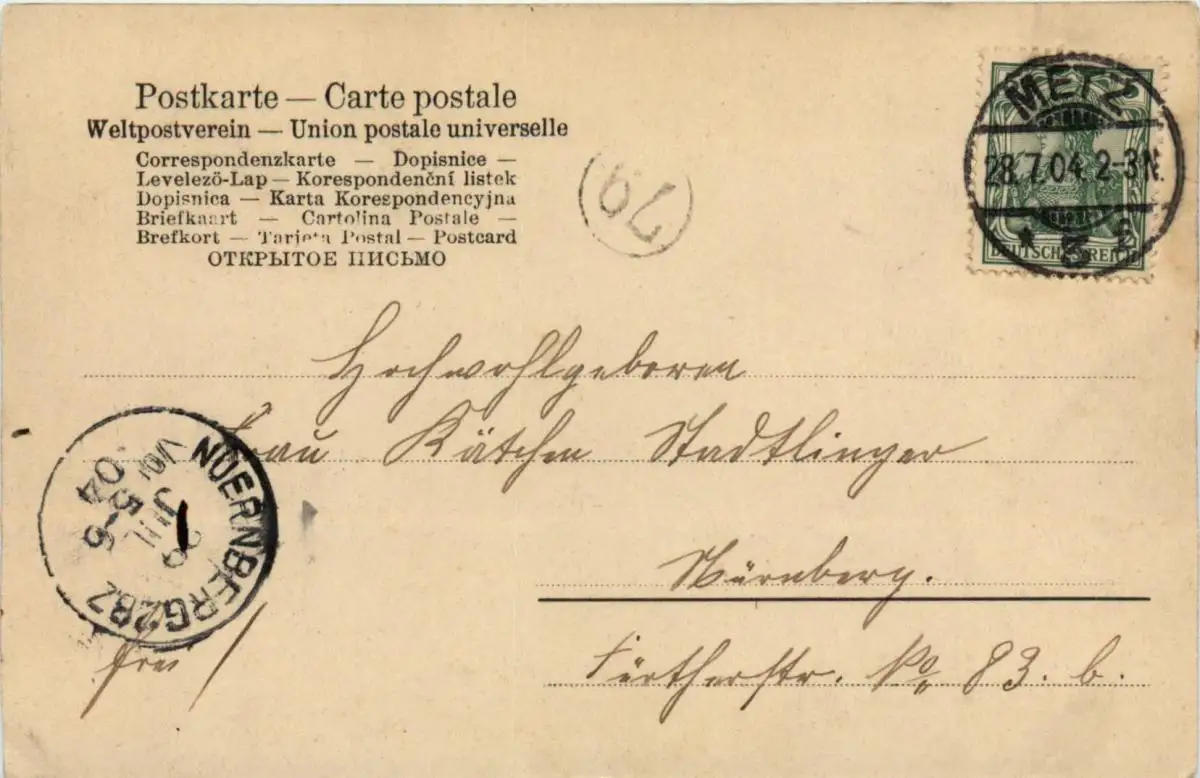 Postkarte — Carte postale
Weltpostverein — Union postale universelle
Correspondenzkarte — Dopisnice —
Levelező-Lap — Korespondenční listek
Dopisnica — Karta Korespondencyjna
Briefkaart — Cartolina Postale —
Brefkort — Tarjeta Postal — Postcard
ОТКРЫТОЕ ПИСЬМО
79
METZ
28.7.04. 2-3N.
* 3
DEUTSCHES REICH
Hochwohlgeboren
Frau Kätchen Stadtlinger
Nürnberg.
Fürtherstr. No 83. b.
NUERNBERG 2BZ
JUL
5-6
04
frei